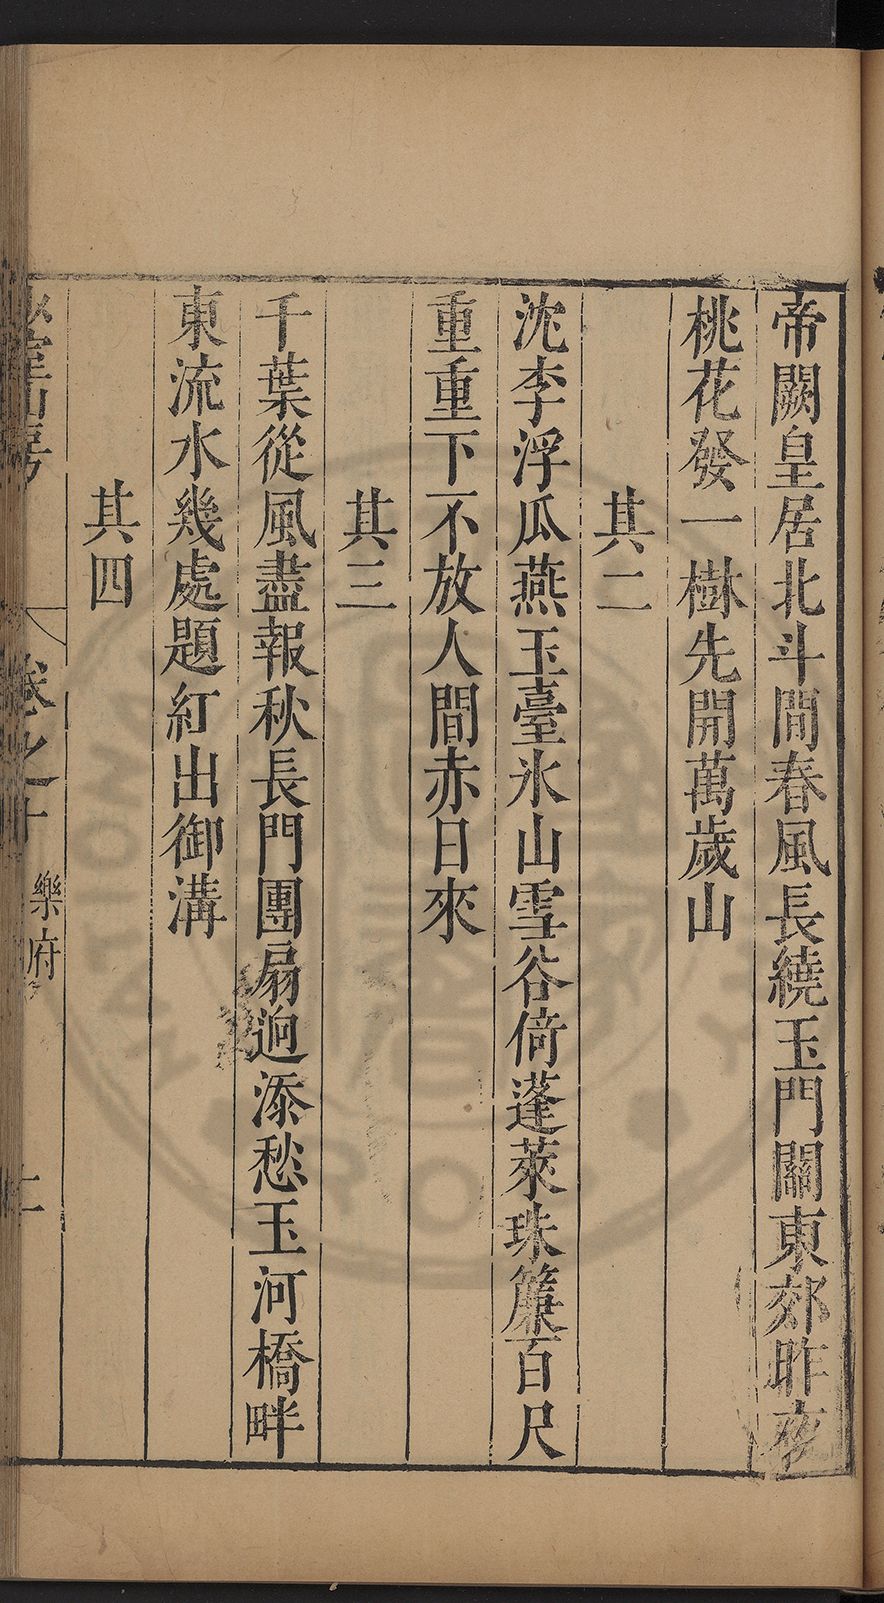 帝闕皇居北斗間春風長繞玉門關東郊昨夜
桃花發一樹先開萬歲山
其二
沈李浮瓜燕玉臺氷山雪谷倚蓬萊珠簾百尺
重重下不放人間赤日來
其三
千葉從風盡報秋長門團扇逈添愁玉河橋畔
東流水幾處題紅出御溝
其四
山房 卷之十 樂府 二